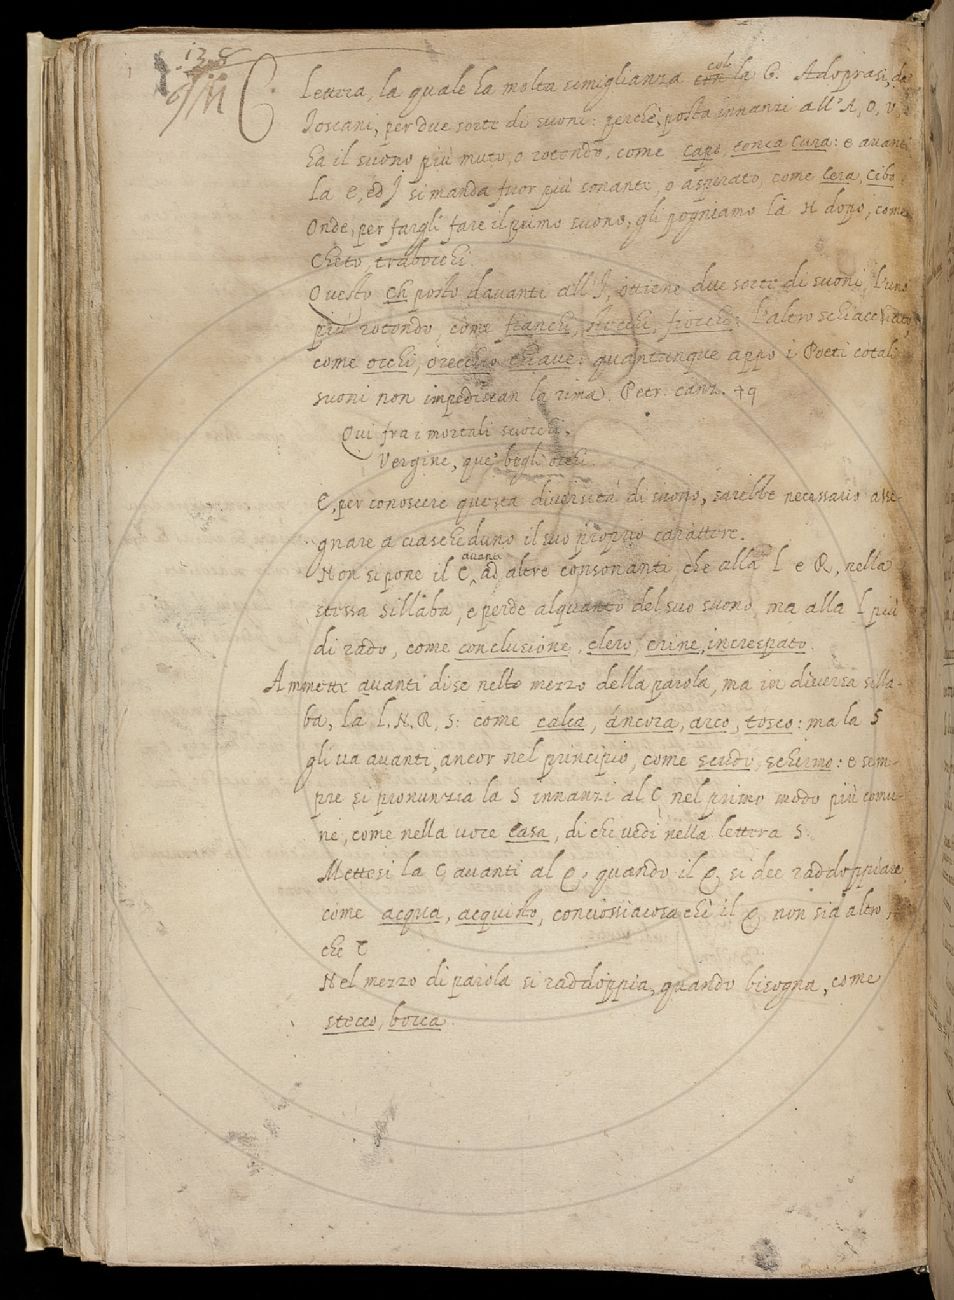 138
C.
Lettera, la quale ha molta simiglianza con col la G. Adoprasi, da
Toscani, per due sorte di suoni: perchè, posta innanzi all'A, O, V,
ha il suono più muto, o rotondo, come capo, conca cura: e avanti
la E, ed I si manda fuor più sonante, o aspirato, come cera, cibo.
Onde, per fargli fare il primo suono, gli pogniamo la H dopo, come
Cheto, trabocchi.
Questo ch posto davanti all'I, ottiene due sorte di suoni, l'uno
più rotondo, come franchi, stecchi, fiocchi: l'altro schiacciato,
come occhi, orecchio chiave: quantunque appo i Poeti cotali
suoni non impediscan la rima. Petr. canz. 49
Qui fra i mortali sciocchi.
Vergine, que' begli occhi.
E, per conoscere questa diversità di suono, sarebbe necessario asse-
gnare a ciascheduno il suo proprio carattere.
Non si pone il C, avanti ad altre consonanti, che alla L e R, nella
stessa sillaba, e perde alquanto del suo suono, ma alla L più
di rado, come conclusione, clero, crine, increspato.
Ammette avanti di se nello mezzo della parola, ma in diversa silla-
ba, la L, N, R, S: come calca, áncora, arco, tosco: ma la S
gli va avanti, ancor nel principio, come scudo, schermo: e sem-
pre si pronunzia la S innanzi al C nel primo modo più comu-
ne, come nella voce casa, di che vedi nella lettera S.
Mettesi la C avanti al Q, quando il Q si dee raddoppiare,
come acqua, acquisto, conciossiacosa chè il Q non sia altro,
che C
Nel mezzo di parola si raddoppia, quando bisogna, come
stecco, bocca.